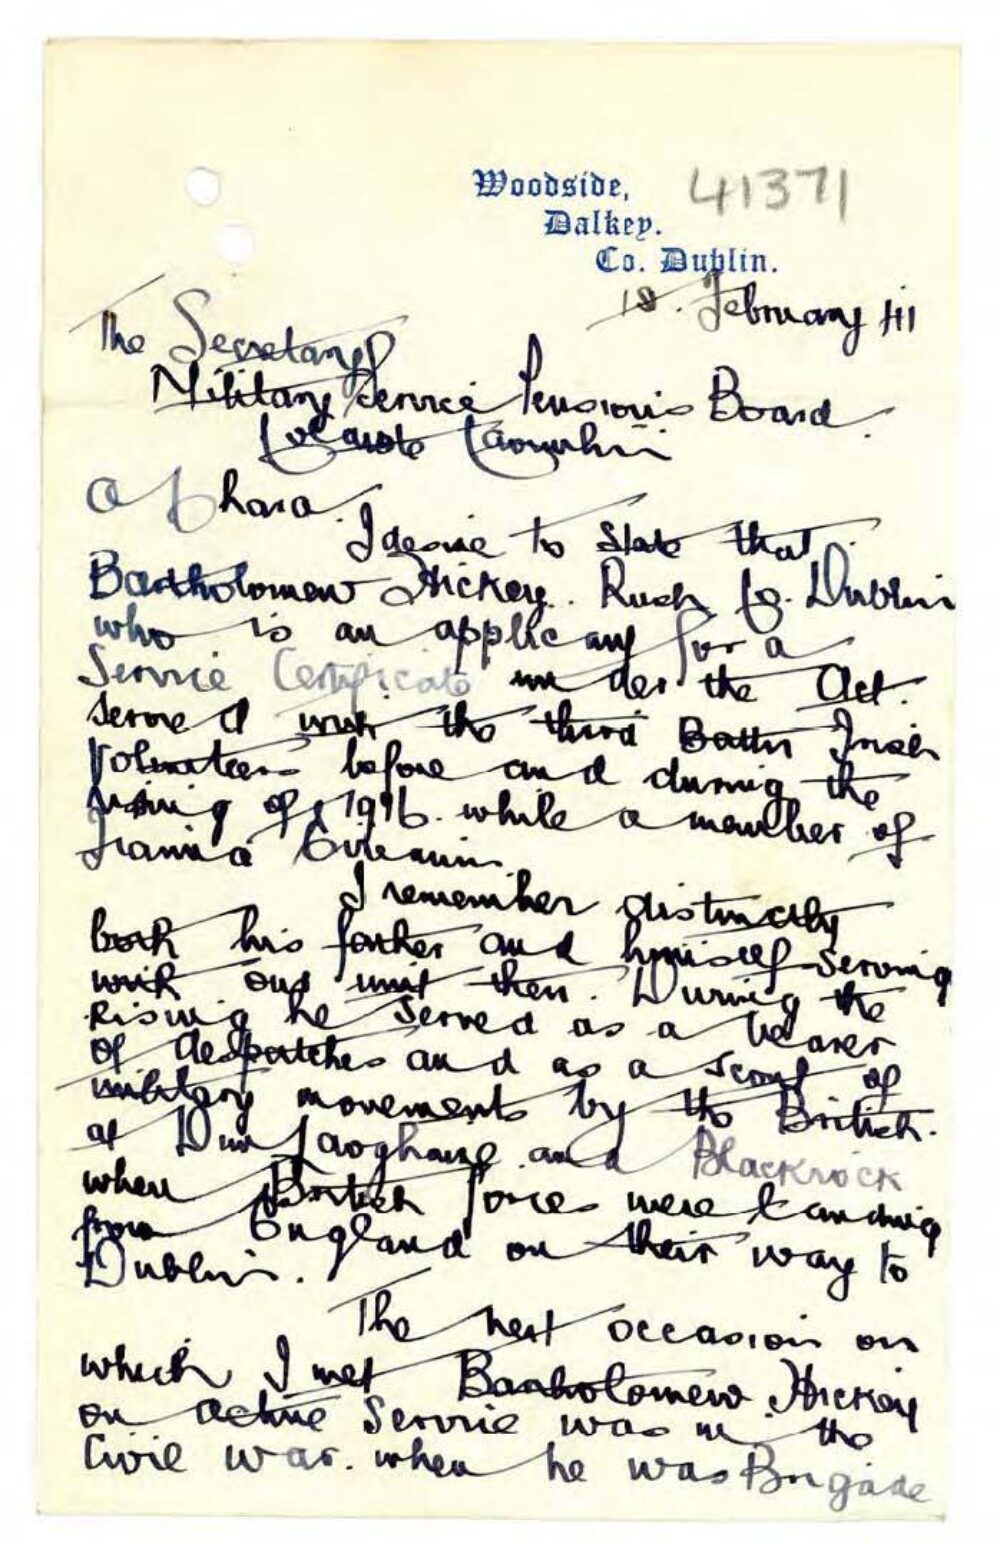 Woodside, 41371
Dalkey.
Co. Dublin.
18. February 41
The Secretary
Military Service Pensions Board.
A Chara.
I desire to state that
Bartholomew Hickey. Rush Co. Dublin
who is an applicant for a
Service Certificate under the Act.
served with the third Battn Irish
Volunteers before and during the
rising of 1916. while a member of
Fianna Eireann.
I remember distinctly
both his father and himself serving
with our unit then. During the
Rising he served as a bearer
of despatches and as a scout of
military movements by the British.
at Dun Laoghaire and Blackrock
when British forces were landing
from England on their way to
Dublin.
The next occasion on
which I met Bartholomew Hickey
on active service was in the
Civil War. when he was Brigade